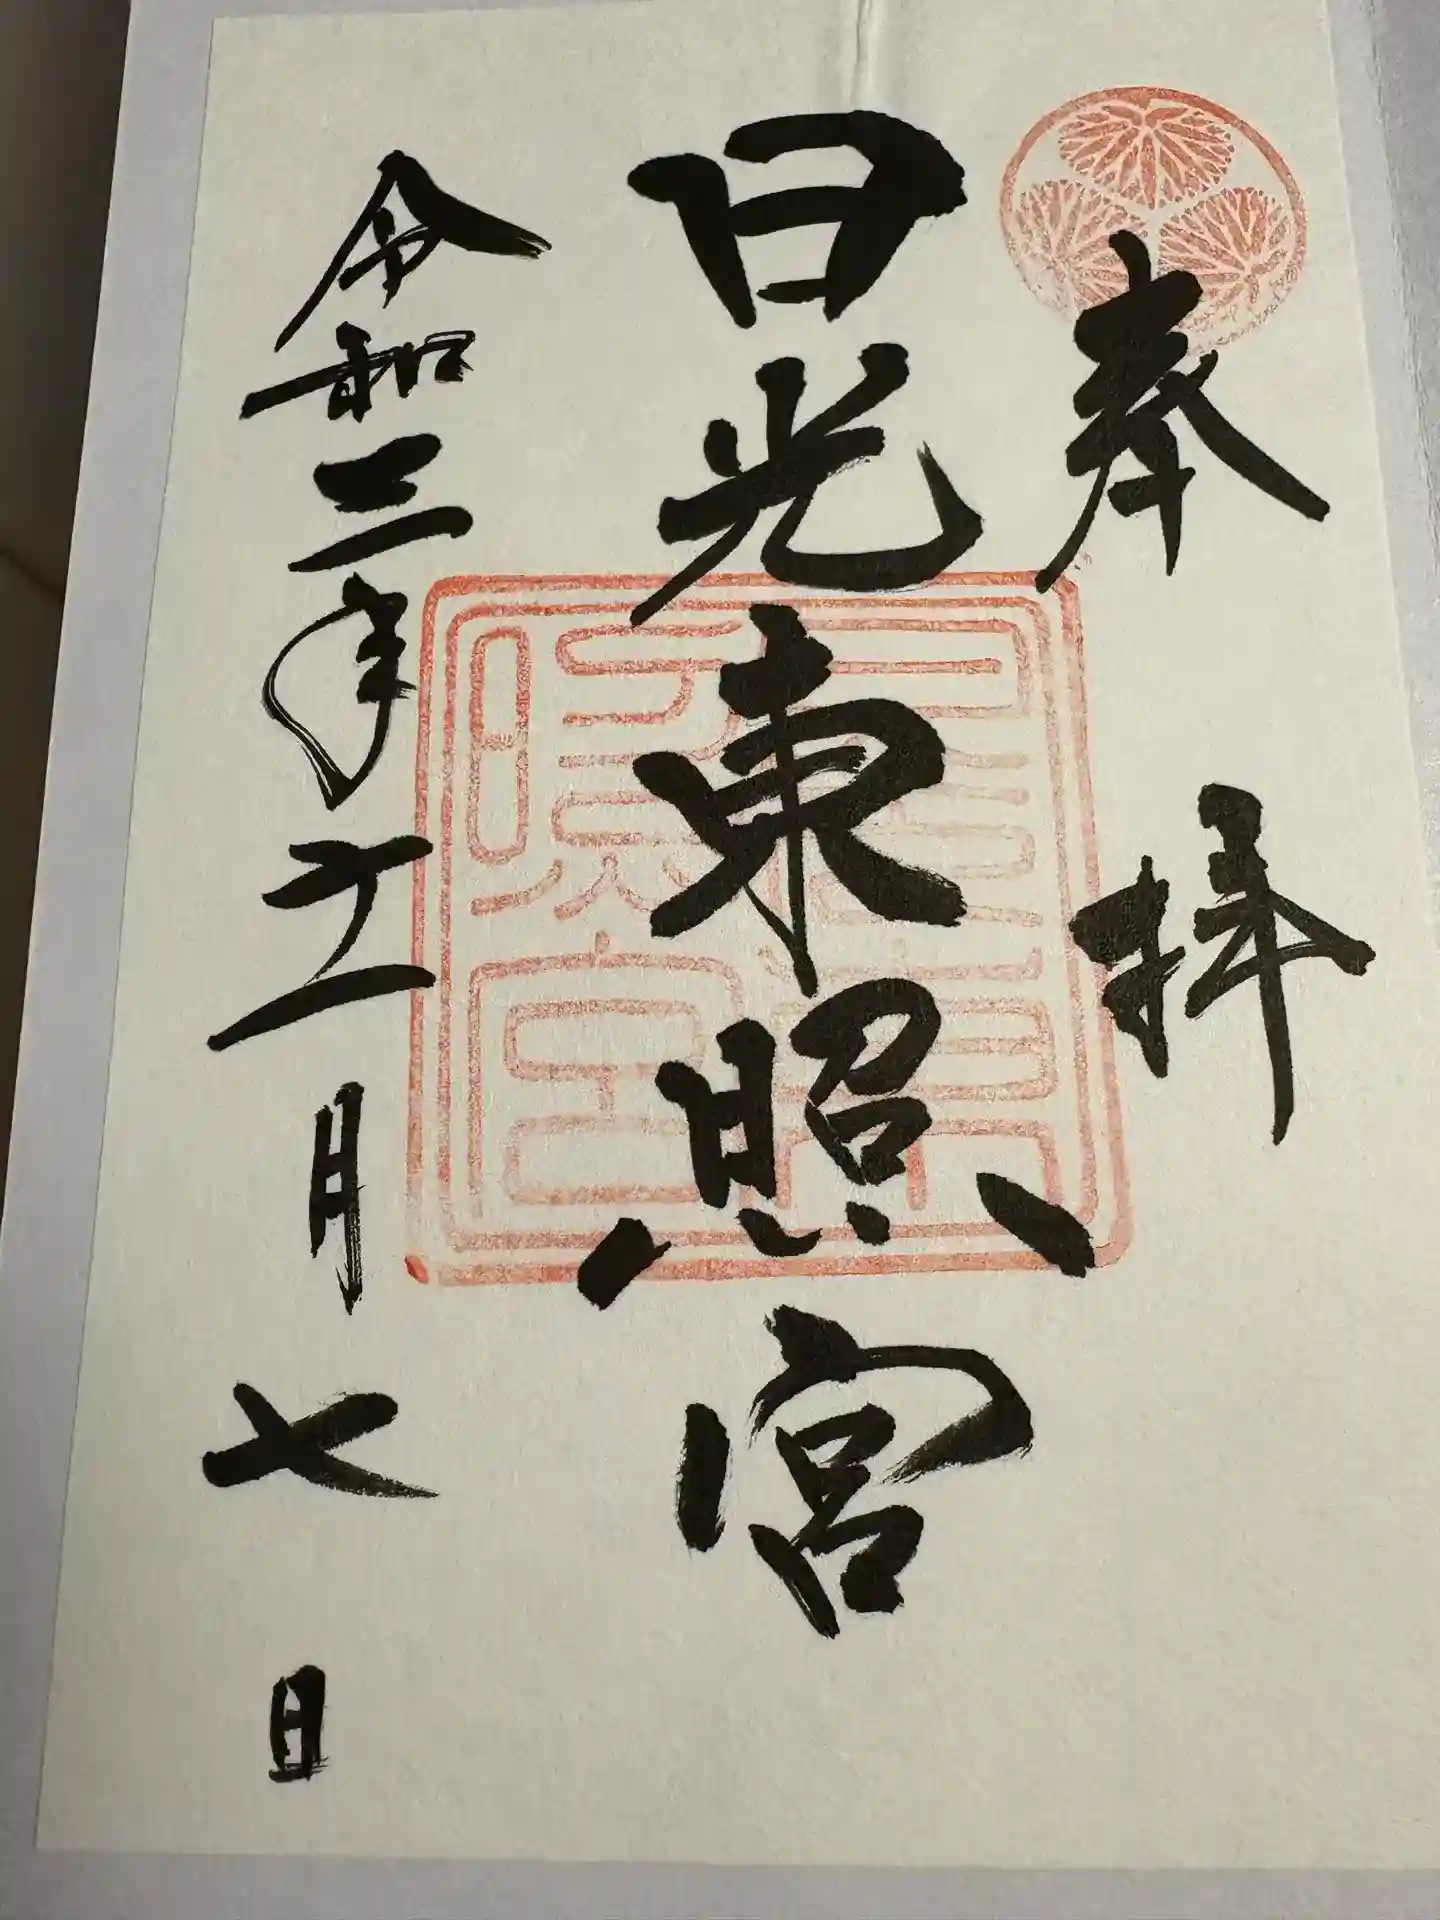 奉拝
日光東照宮
令和三年十一月七日